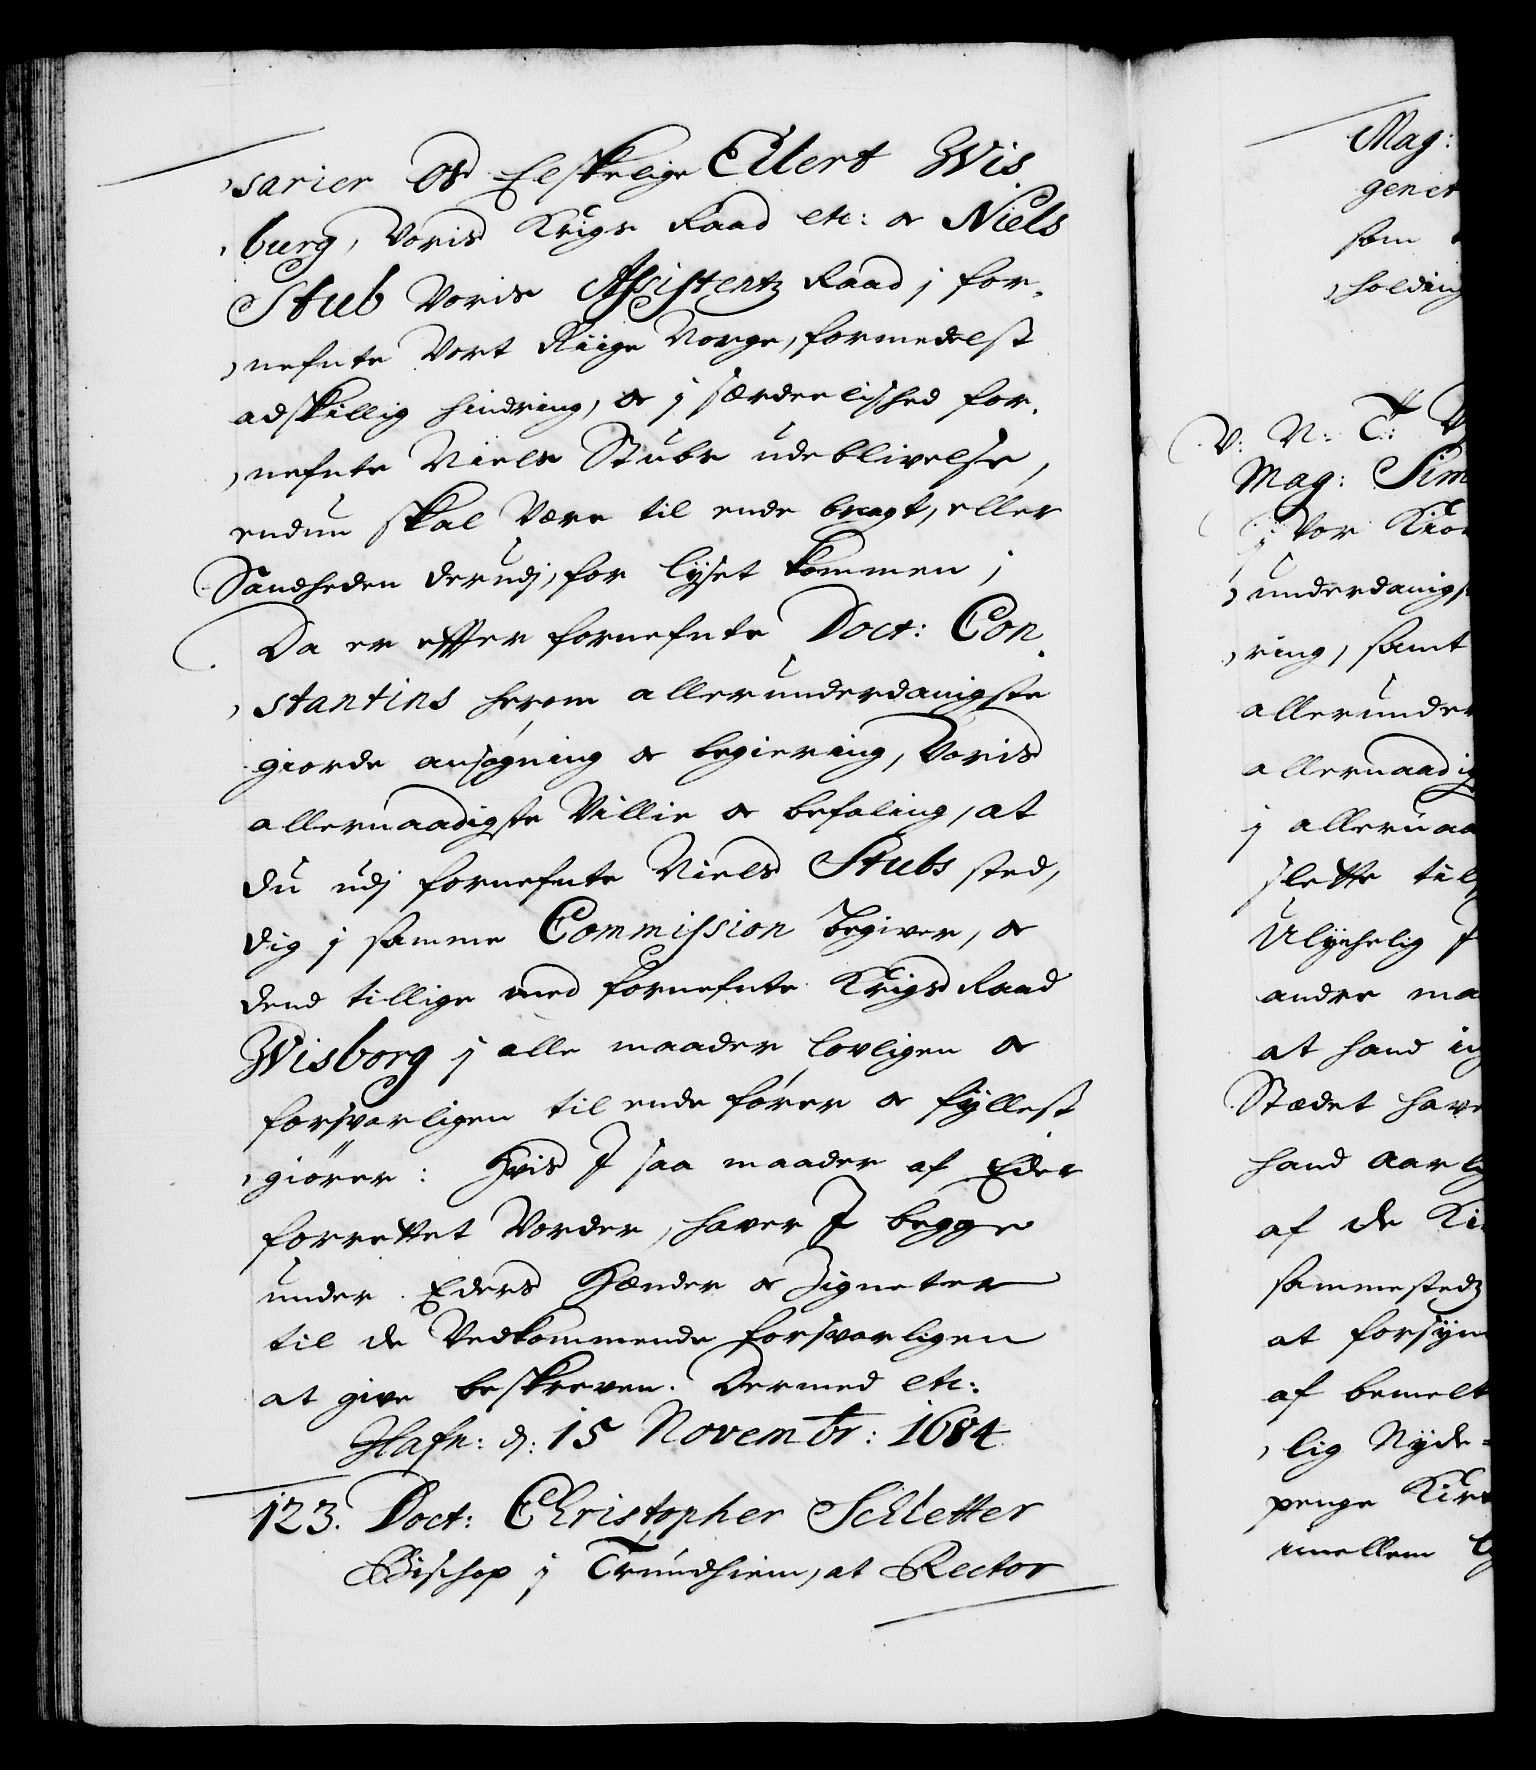 sarier Os Elskelige Eilert Wis
burg, Voris Krigs Raad etc: og Niels
Stub Voris Assistentz Raad j for¬
nefnte Vort Riige Norge, formedelst
adskillig hindring, og j særdeelished for¬
nefnte Niels Stubs udeblivelse,
endnu skal være til ende bragt, eller
Sandheden derudj, for lyset kommen;
Da er effter fornefnte Doct: Con¬
stantins herom allerunderdanigste
giorde ansøgning og begiering, Voris
allernaadigste Villie og befaling, at
du udj fornefnte Niels Stubs sted,
dig j samme Commission begiver, og
dend tillige med fornefnte Krigs Raad
Wisborg j alle maader lovligen og
forsvarligen til ende fører og fyllest
giører: Hvis I saa maader af Eder
forrettet Vorder, haver I begge
under Eders Hænder og Zigneter
til de Vedkommende forsvarligen
at give beskreven. Dermed etc:
Hafn: d: 15 Novembr: 1684
123. Doct: Christopher Schletter
Bischop j Trundhiem, at Rector
Mag:
som
holding
V: N: T: V
Mag: Sim
j Vor Kiø
underdanigs
ring, samt
allerunder
allernaadig
j allernaa
slette til
Ulychelig
andre ma
at hand
Stædet have
hand Aarl
af de Ki
sammestedz
at forsyn
af bemelt
lig Nyde
penge Kir
imellem